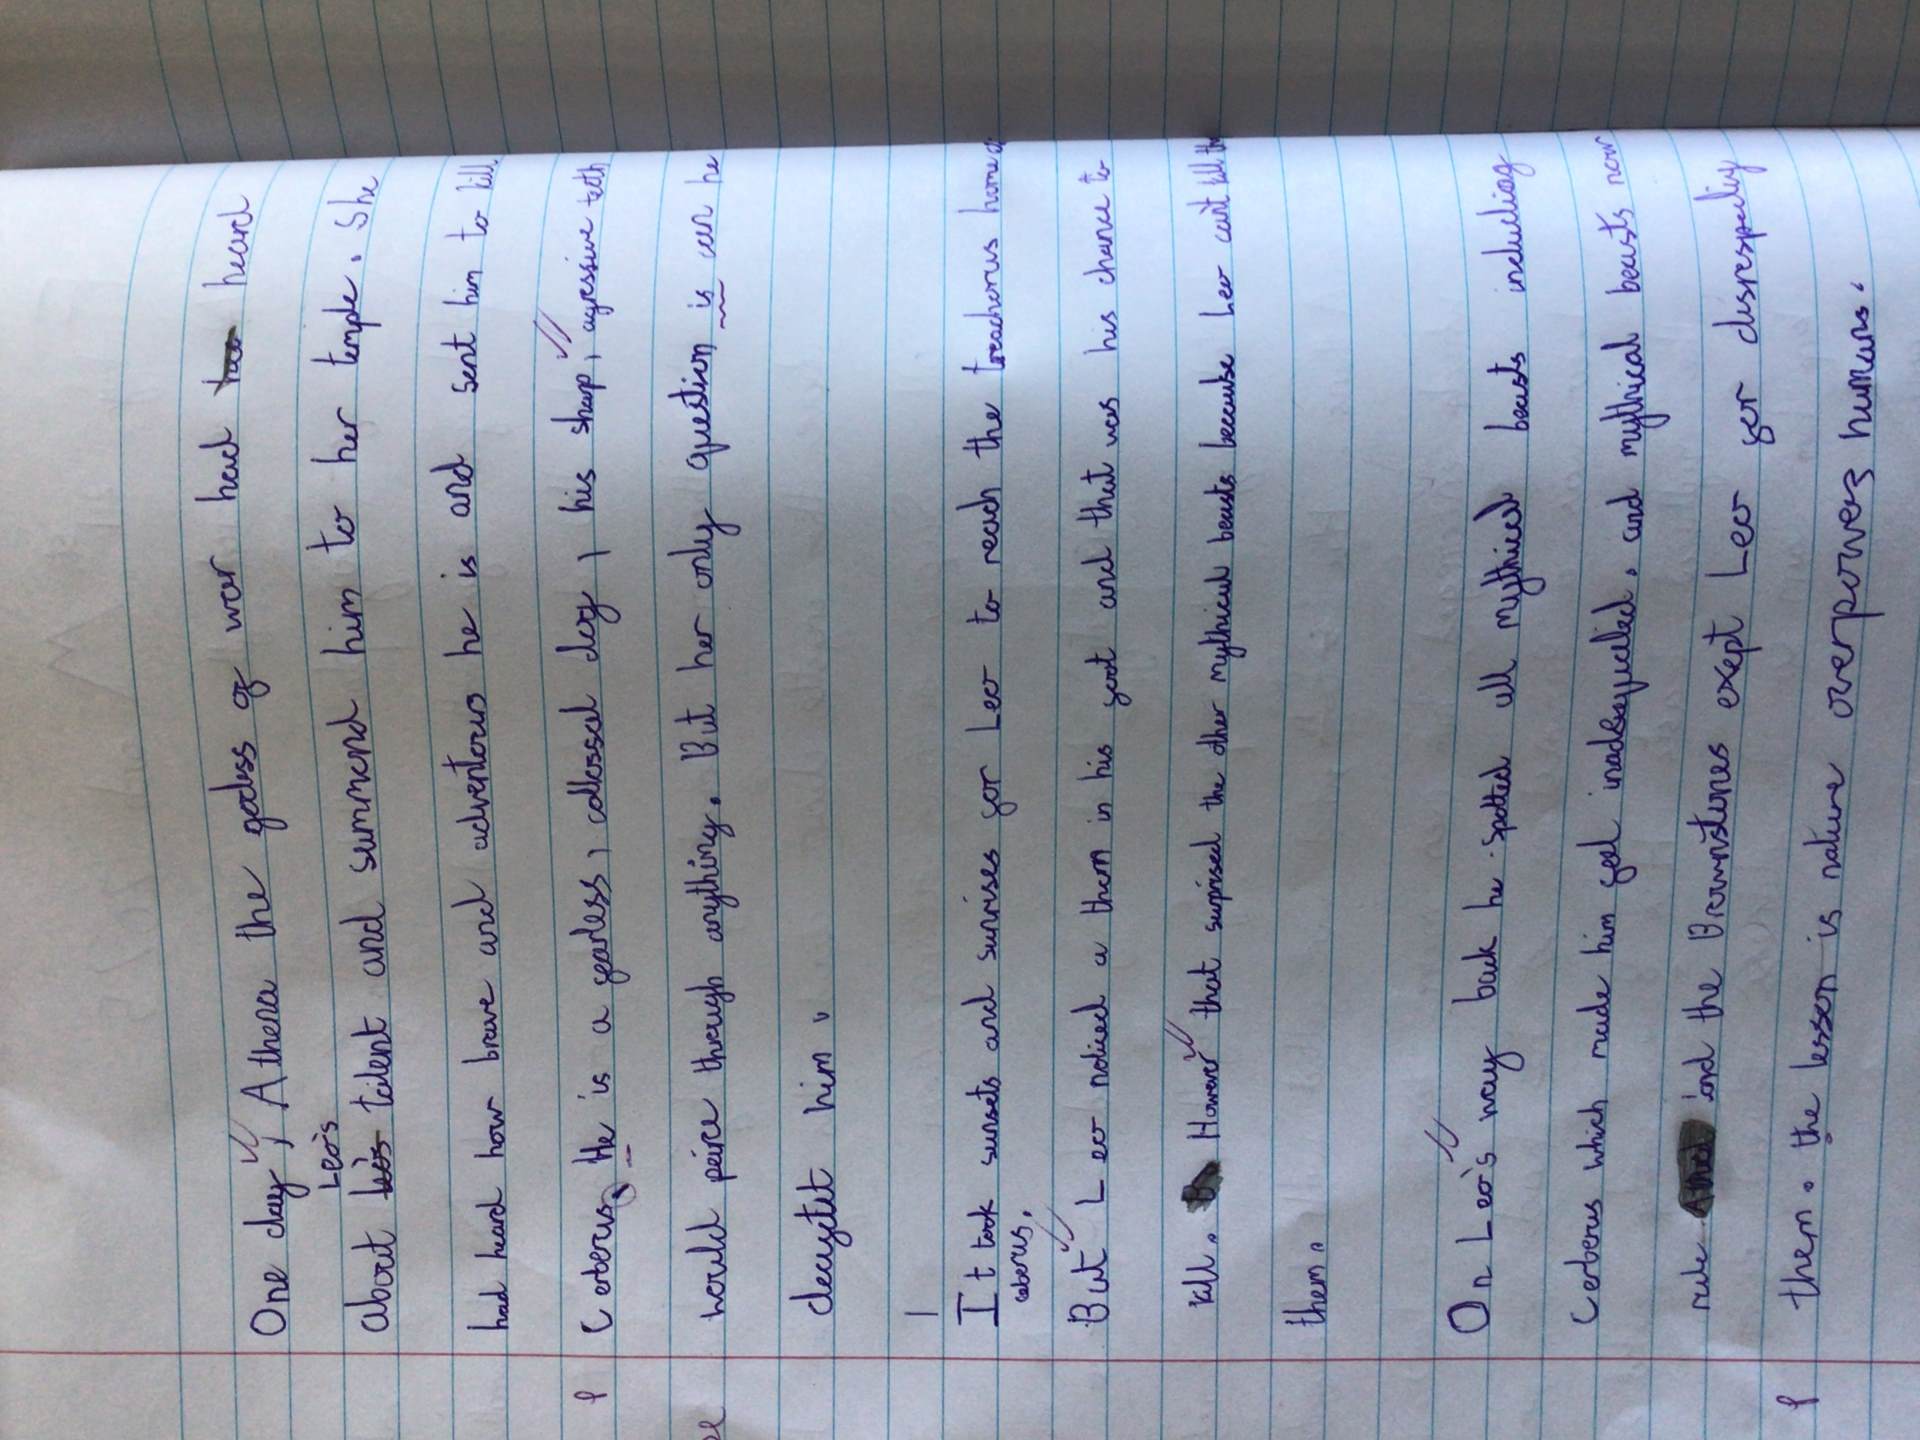 One day, Athena the godess of war had heard
Leo's
about talent and summond him to her temple. She
had heard how brave and adventorus he is and sent him to kill
Cerberus. He is a fearless, collossal dog, his sharp, agressive teth
would peirce through anything. But her only question is can he
decyfet him.
It took sunsets and sunrises for Leo to reach the treachorus home of
ceberus.
But Leo noticed a thorn in his foot and that was his chance to
kill. However that suprised the other mythical beasts because Leo can't kill
them.
On Leo's way back he spotted all mythical beasts including
Cerberus which made him feel inadequeled. and mythical beasts now
rule and the Brownstones exept Leo for disrespecting
them. the lesson is nature overpowers humans.
P
P